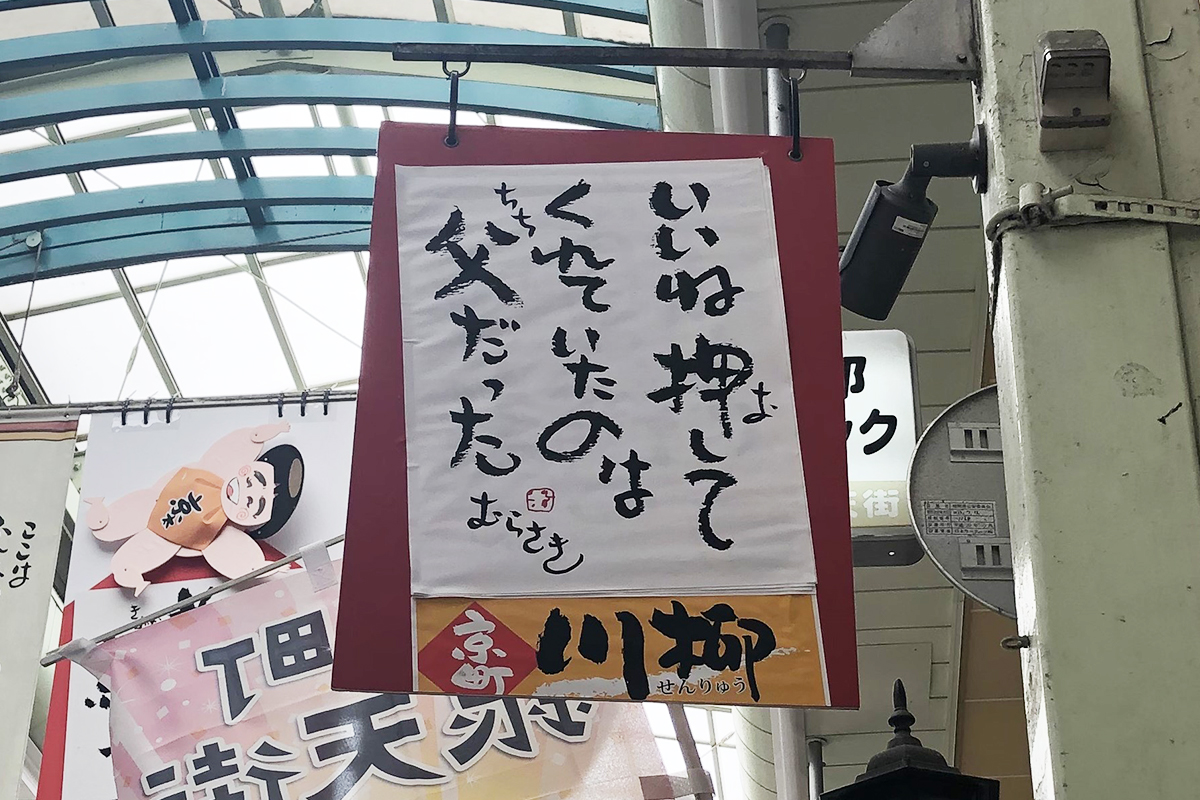 いいね押して
お
くれていたのは
ちち
父だった
むらさき
京町
川柳
せんりゅう
ック
街
京
ここは
き
町
天街